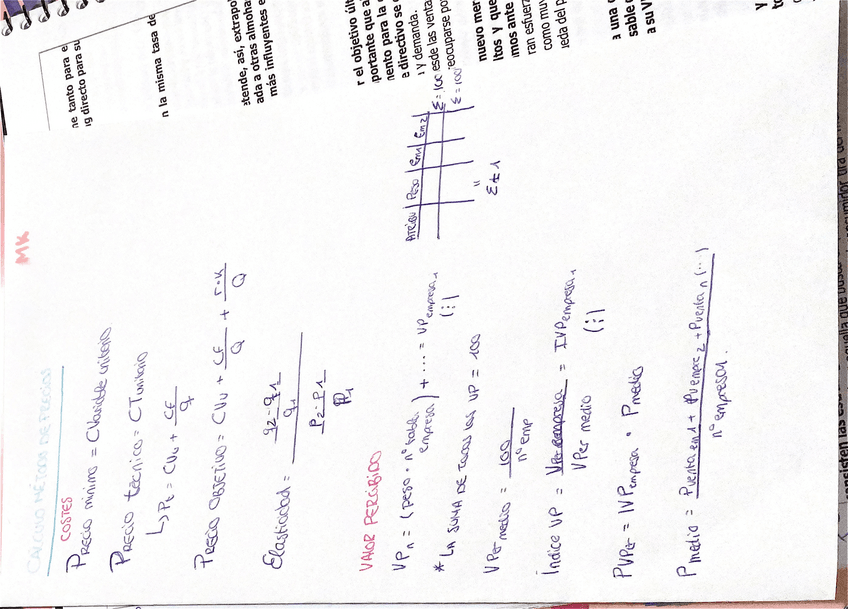 MK
CÁLCULO MÉTODO DE PRECIOS
COSTES
Precio mínimo = CVariable unitario
Precio técnico = CTunitario
↳ Pt = CVu + CF/q
Precio objetivo = CVu + CF/Q + r·K/Q
Elasticidad = (q2-q1/q1)/(P2-P1/P1)
VALOR PERCIBIDO
VPn = (peso · nº tabla empresa) + ... = VP empresa1
(⋮)
* LA SUMA DE TODOS LOS VP = 100
VPer medio = 100/nº emp
Índice VP = VPer empresa/VPer medio = IVP empresa1
(⋮)
PVPer = IVP empresa · P medio
P medio = Pventa em1 + Pvempre2 + Pventa n (...)/nº empresas.
Peso | Em1 | Em2
Σ=100
Σ=100
"
Σ±1
ne tanto para e
ng directo para su
n la misma tasa de
etende, así, extrapo
ada a otras almoha
más influyentes e
r el objetivo últ
portante que a
mento para la
e directivo se
y demanda.
esde las venta
reocuparse po
nuevo mer
ltos y que
imos ante
ran esfuerz
como muy
ueda del p
a una
sable
a su V